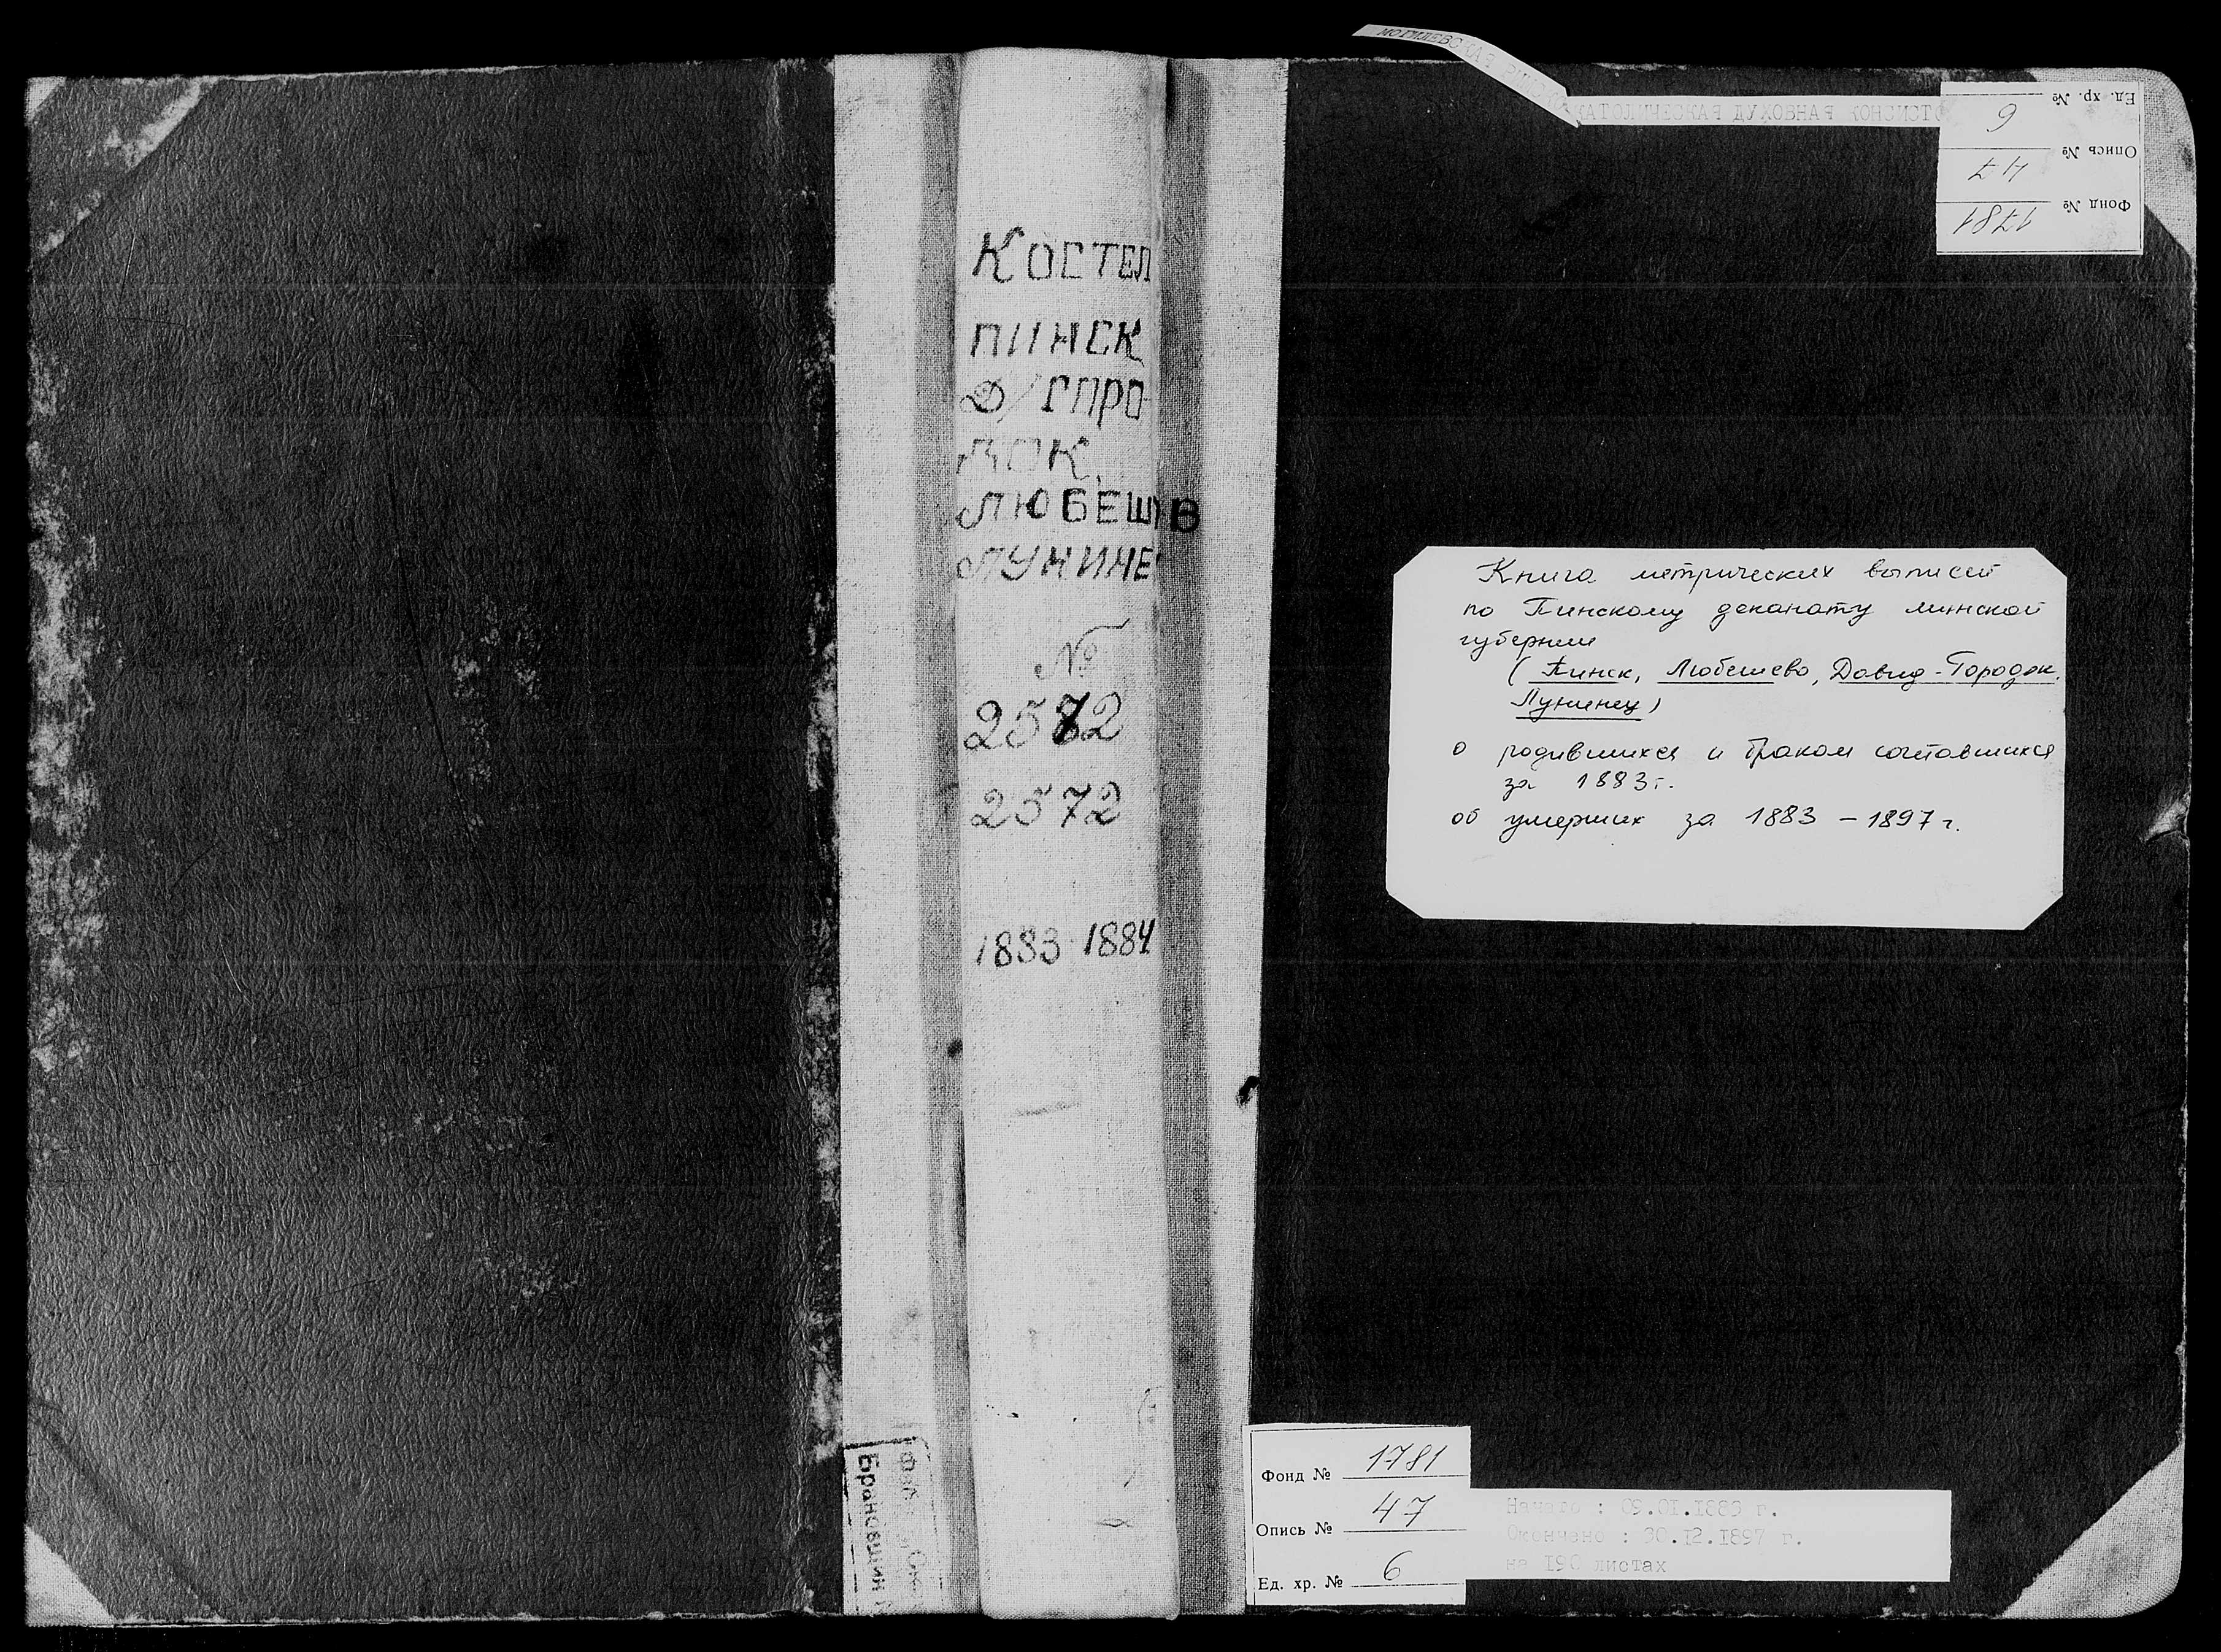 КОСТЕЛ
ПИНСК
Д/ГОРО-
ДОК,
ЛЮБЕШОВ
ЛУНИНЕ
№
2582
2572
1883-1884
МОГИЛЕВСКАЯ РИМСКО
КАТОЛИЧЕСКАЯ ДУХОВНАЯ КОНСИСТО
Фонд № 1781
Опись № 47
Ед. хр. № 6
Книга метрических выписей
по Пинскому деканату минской
губернии
(Пинск, Любешево, Давид-Городок,
Лунинец)
о родившихся и браком сочетавшихся
за 1883г.
об умерших за 1883 – 1897 г.
Фонд № 1781
Опись № 47
Ед. хр. № 6
Начато : 09.01.1883 г.
Окончено : 30.12.1897 г.
на 190 листах